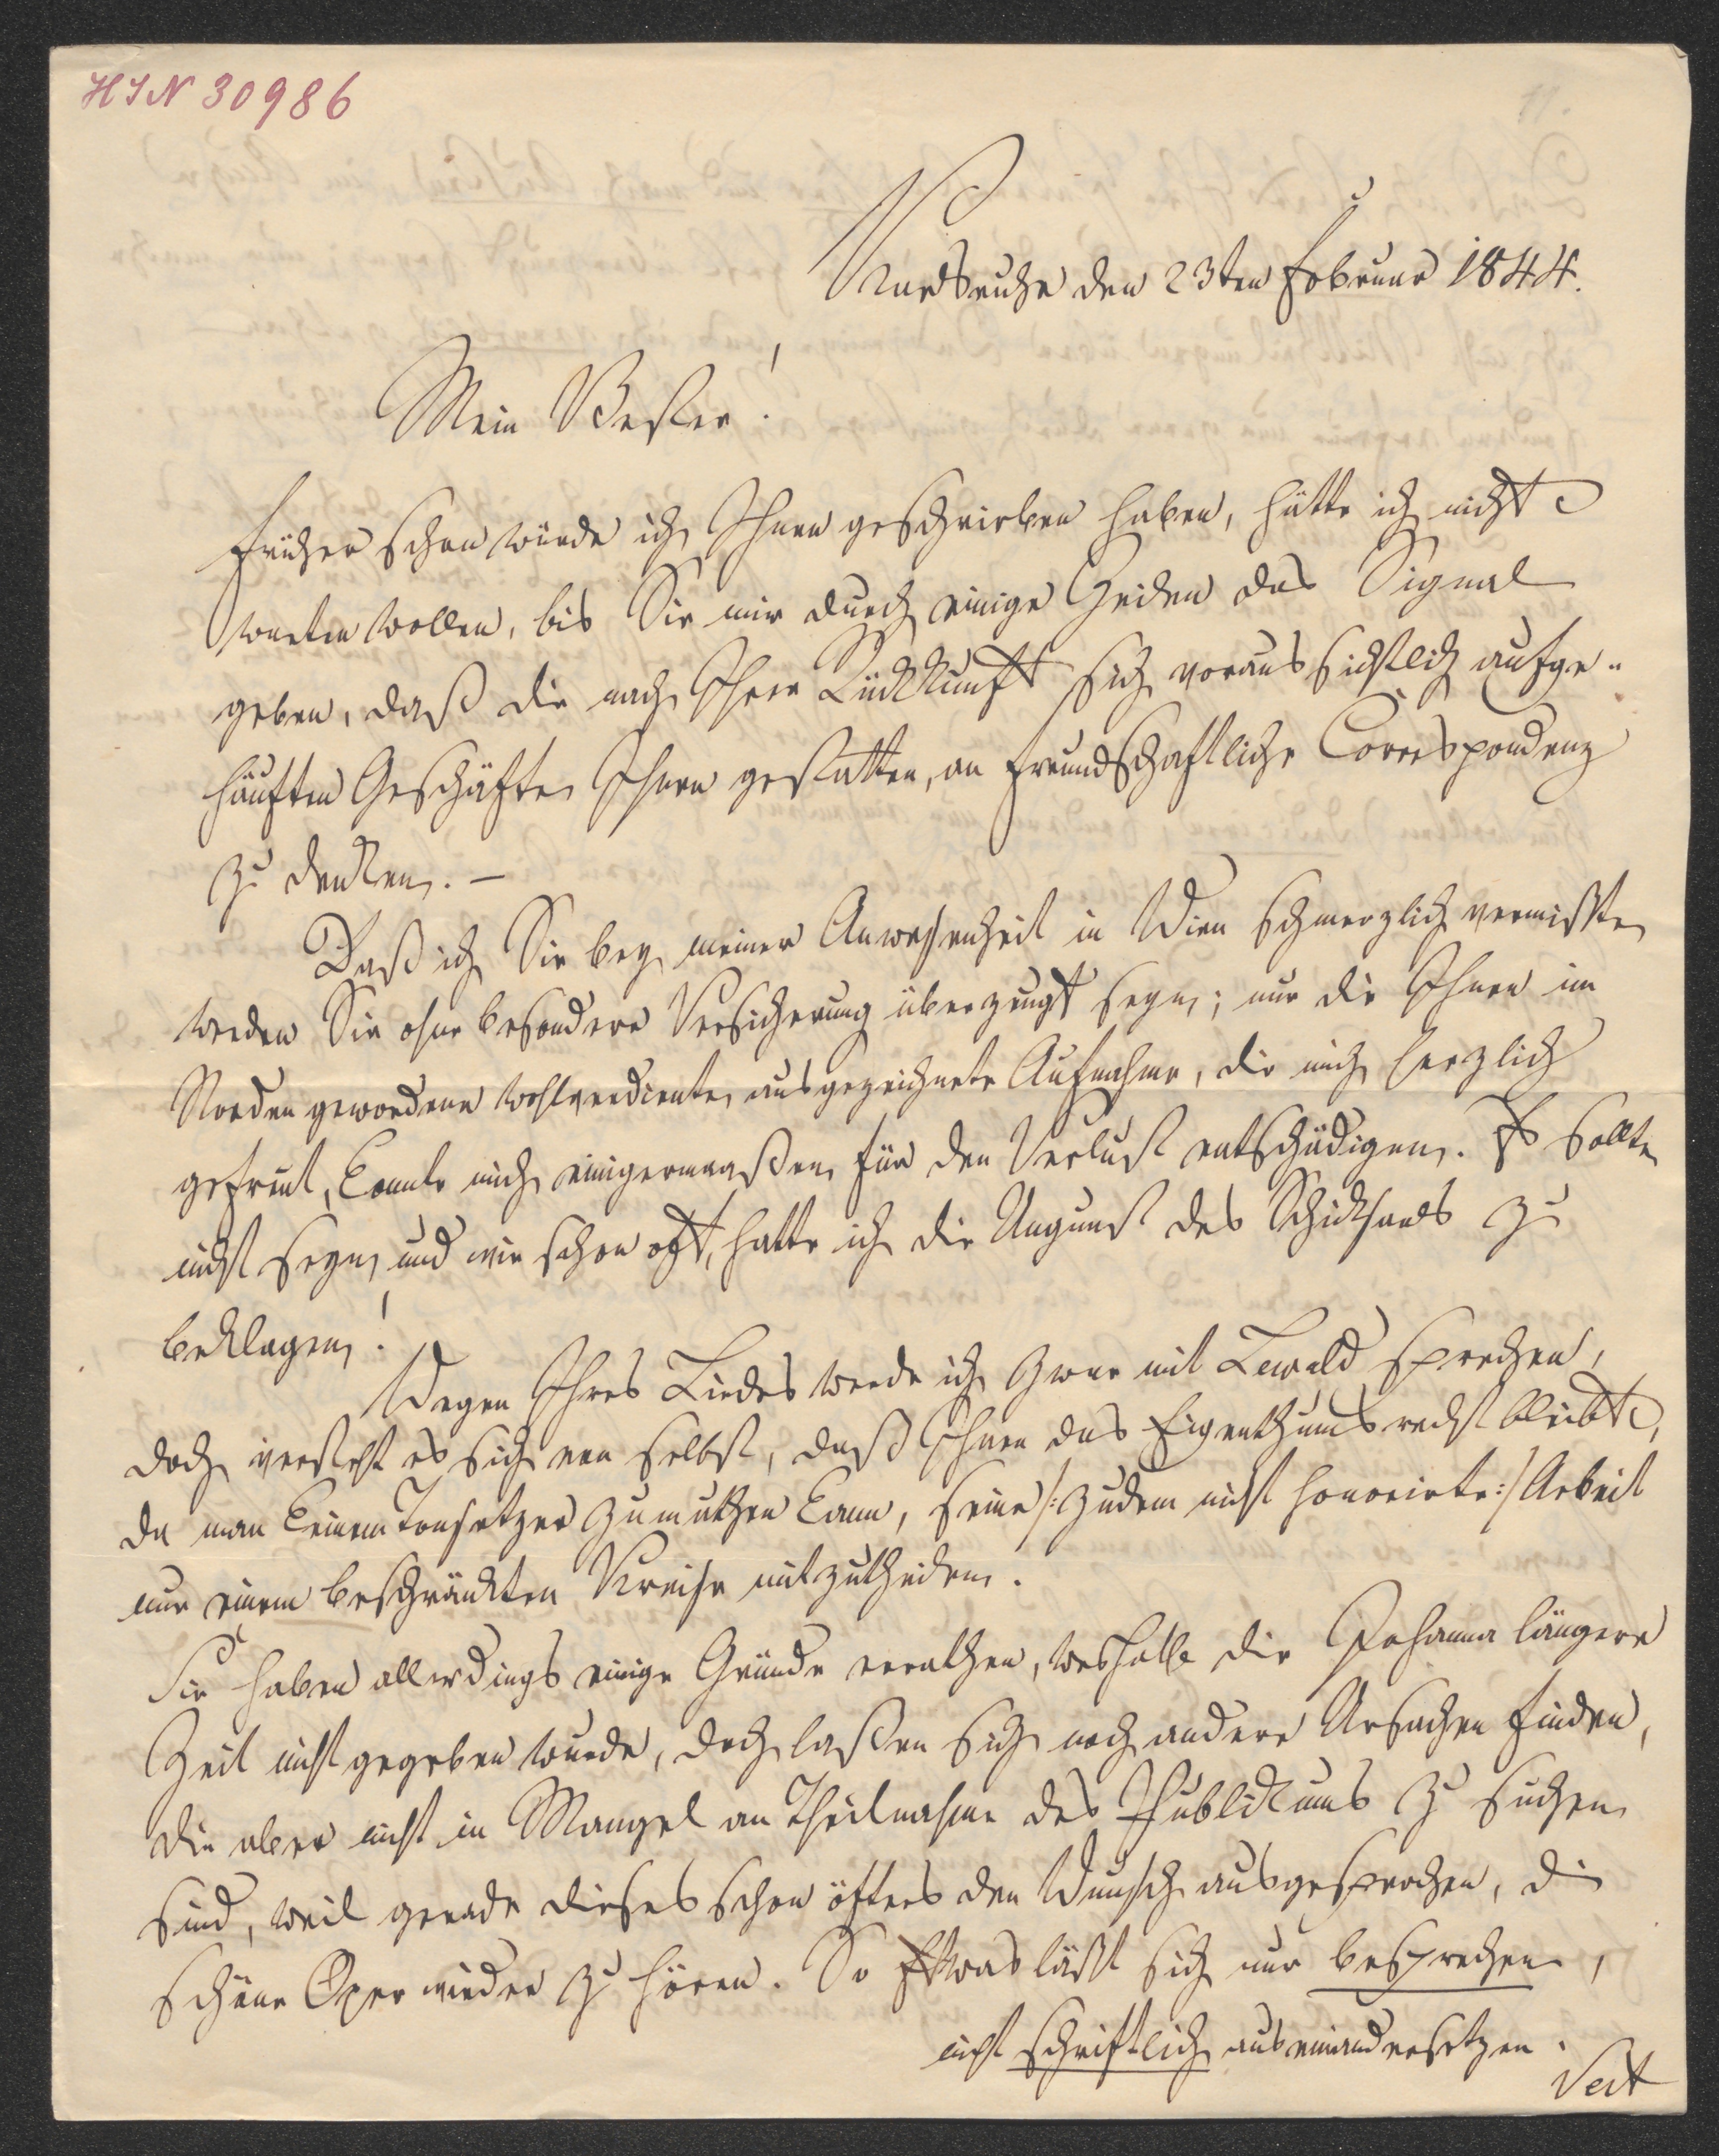 HIN 30986
11.
Karlsruhe den 23ten Februar 1844.
Mein Bester!
Früher schon würde ich Ihnen geschrieben haben, hätte ich nicht
warten wollen, bis Sie mir durch einige Zeilen das Signal
geben, daß die nach Ihrer Rückkunft sich voraussichtlich aufge-
häuften Geschäfte Ihnen gestatten, an freundschaftliche Correspondenz
zu denken. —
Daß ich Sie bey meiner Anwesenheit in Wien schmerzlich vermißte
werden Sie ohne besondere Versicherung überzeugt seyn; nur die Ihnen im
Norden gewordene wohlverdiente, ausgezeichnete Aufnahme, die mich herzlich
gefreut, konnte mich einigermaaßen für den Verlust entschädigen. Es sollte
nicht seyn, und wie schon oft, hatte ich die Ungunst des Schicksaals zu
beklagen!
Wegen Ihres Liedes werde ich zwar mit Lewald sprechen,
doch versteht es sich von selbst, daß Ihnen das Eigenthumsrecht bleibt,
da man keinem Tonsetzer zumuthen kann, seine /: zudem nicht honorirte :/ Arbeit
nur einem beschränkten Kreise mitzutheilen.
Sie haben allerdings einige Gründe errathen, weshalb die Johanna längere
Zeit nicht gegeben wurde, doch laßen sich noch andere Ursachen finden,
die aber nicht in Mangel an Theilnahme des Publikums zu suchen
sind, weil gerade dieses schon öfters den Wunsch ausgesprochen, die
schöne Oper wieder zu hören. So Etwas läßt sich nur besprechen,
nicht schriftlich auseinandersetzen.
Vert